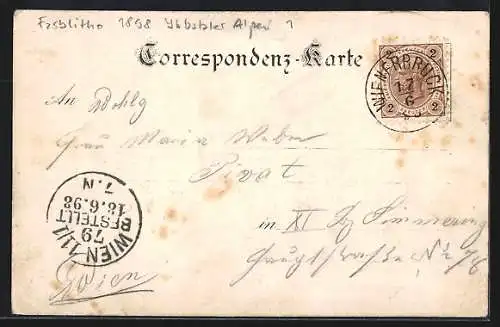 Farblitho 1898 Ybbstaler Alpen 1
Correspondenz-Karte
2 2
2 2
WIENERBRUCK
17
6
An Wohlg
Frau Maria Weber
Privat
in XI Bz Simmering
Hauptstraße N
Wien
WIEN 11/1
79
BESTELLT
18.6.98
7.N